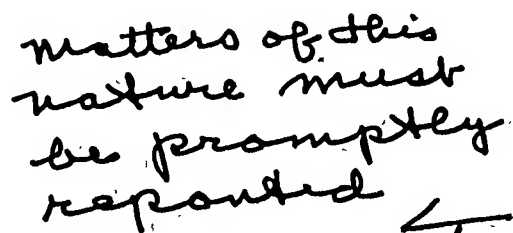 matters of this
nature must
be promptly
reported